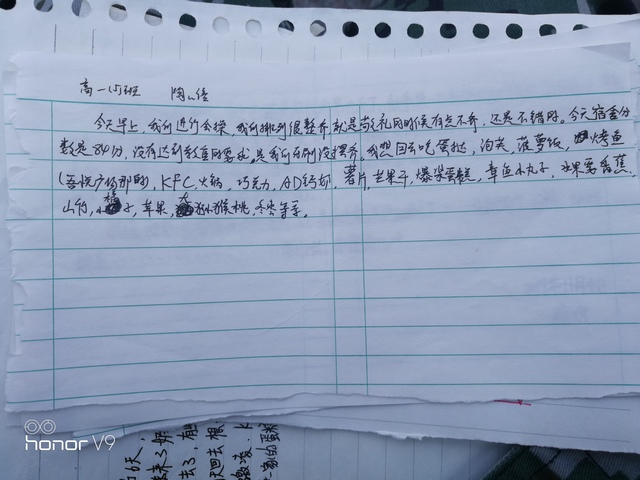 高一(5)班 陶心佳
今天早上，我们进行会操，我们排列很整齐就是敬礼的时候有点不齐，还是不错的。今天宿舍分
数是84分，没有达到教官的要求，是我们牙刷没摆齐，我想回去吃蛋挞，泡芙，菠萝饭，烤鱼
(万悦广场那的)，KFC，火锅，巧克力，AD钙奶，薯片，芒果干，爆浆蛋糕，章鱼小丸子，水果要香蕉，
山竹，橘子，苹果，猕猴桃，冬枣等等。
honor V9
6天，
去了，
天回去